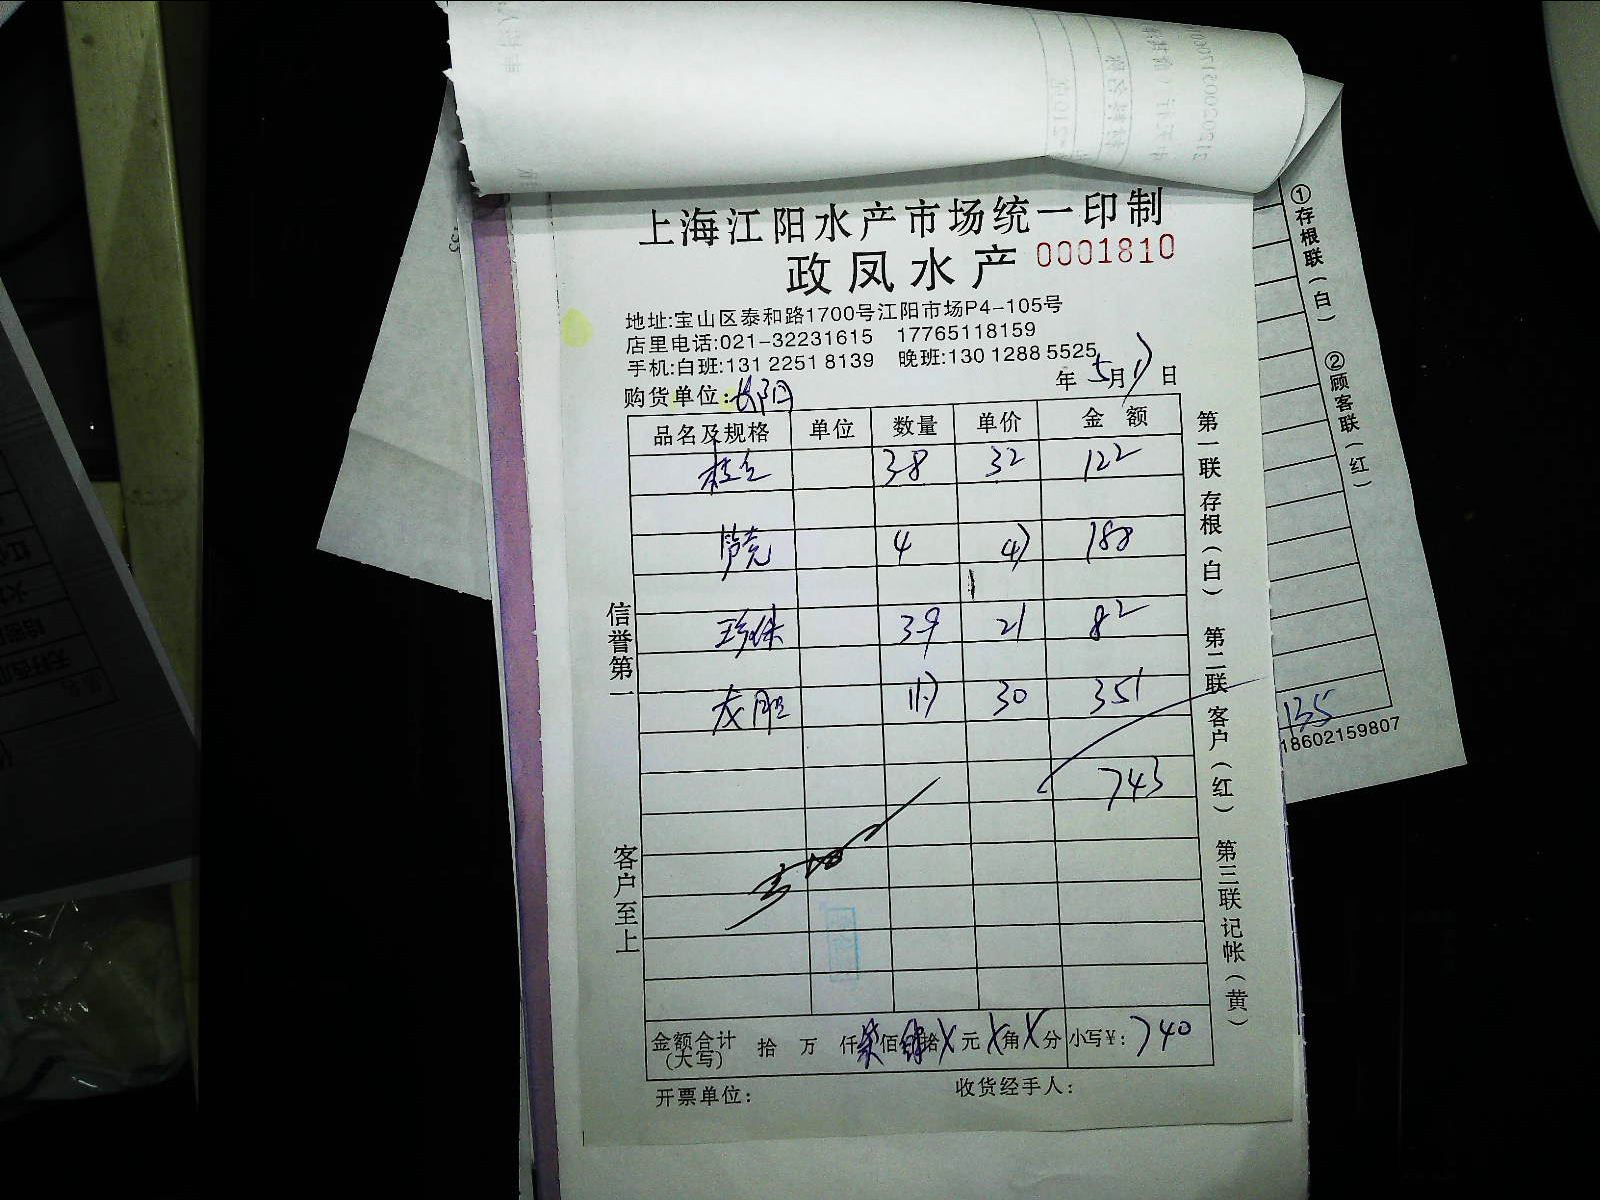 上海江阳水产市场统一印制
政凤水产 0001810
地址:宝山区泰和路1700号江阳市场P4-105号
店里电话:021-32231615 17765118159
手机:白班:131 2251 8139 晚班:130 1288 5525
购货单位: 年 5月17日
品名及规格 单位 数量 单价 金额
38 32 122
4 47 188
珍珠 39 21 82
117 30 351
743
金额合计(大写) 拾 万 仟柒佰肆拾X元X角X分 小写¥: 740
开票单位: 收货经手人:
信誉第一
客户至上
第一联存根(白) 第二联客户(红) 第三联记帐(黄)
①存根联(白) ②顾客联(红)
135
18602159807